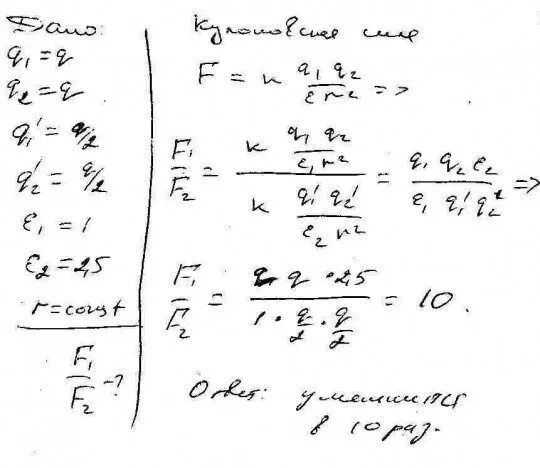 Дано:
q₁ = q
q₂ = q
q₁' = q/2
q₂' = q/2
ε₁ = 1
ε₂ = 2,5
r = const
F₁/F₂ - ?
Кулоновская сила
F = k q₁ q₂ / ε r² =>
F₁/F₂ = (k q₁ q₂ / ε₁ r²) / (k q₁' q₂' / ε₂ r²) = q₁ q₂ ε₂ / ε₁ q₁' q₂' =>
F₁/F₂ = q q · 2,5 / 1 · q/2 · q/2 = 10.
Ответ: уменьшится
в 10 раз.